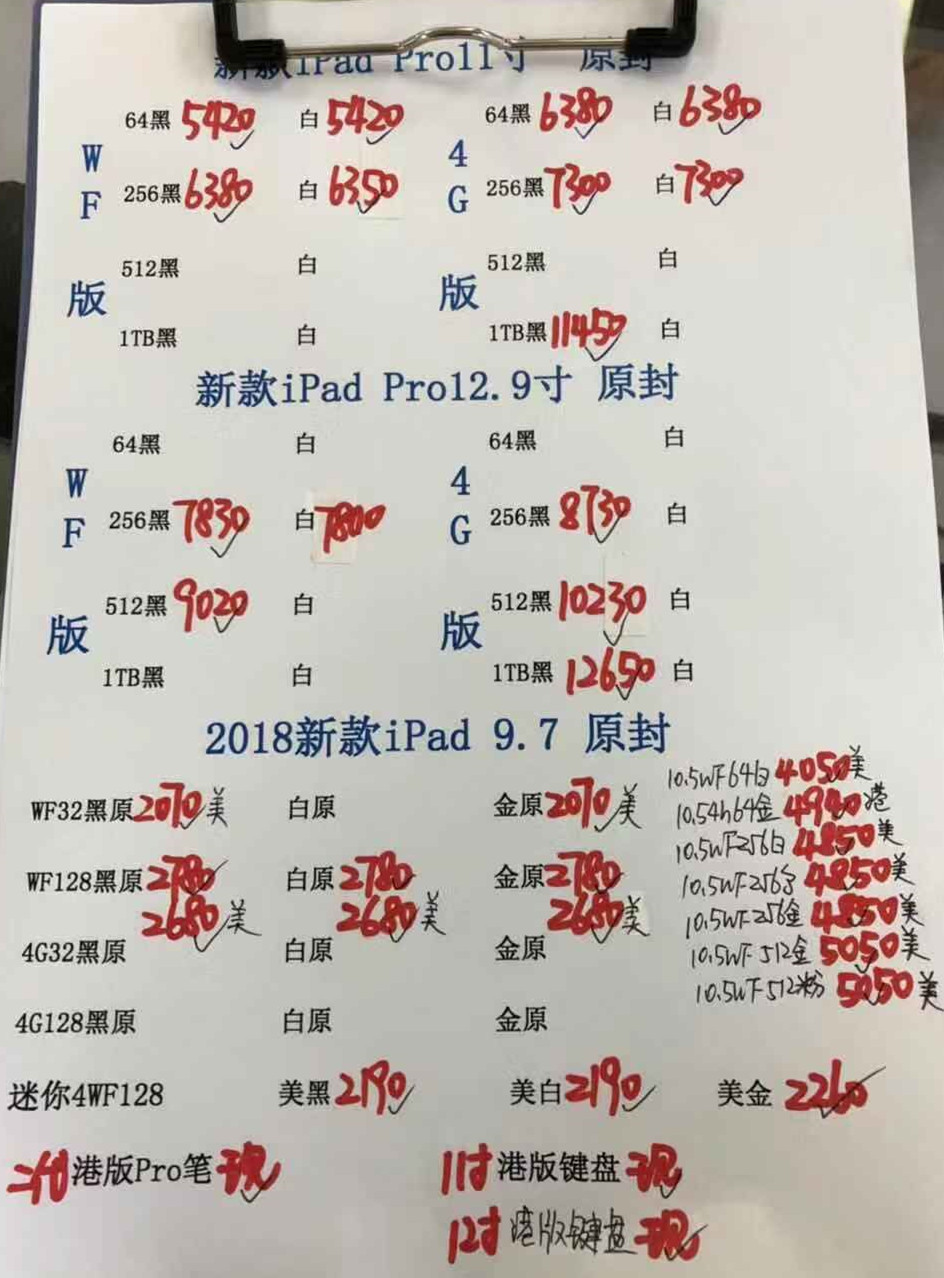 新款iPad Pro11寸 原封
64黑 5420 白 5420 64黑 6380 白 6380
WF版 4G版
256黑 6380 白 6350 256黑 7300 白 7300
512黑 白 512黑 白
1TB黑 白 1TB黑 11450 白
新款iPad Pro12.9寸 原封
64黑 白 64黑 白
WF版 4G版
256黑 7830 白 7800 256黑 8730 白
512黑 9020 白 512黑 10230 白
1TB黑 白 1TB黑 12650 白
2018新款iPad 9.7 原封
10.5WF64白 4050美
WF32黑原 2070美 白原 金原 2070美
10.54h64金 4940港
10.5WF256白 4850美
WF128黑原 2780 白原 2780 金原 2780
10.5WF256 4850美
2680美 2680美 2680美
10.5WF256金 4850美
4G32黑原 白原 金原
10.5WF512金 5050美
10.5WF512粉 5050美
4G128黑原 白原 金原
迷你4WF128 美黑 2190 美白 2190 美金 2260
港版Pro笔 11寸港版键盘
12寸港版键盘